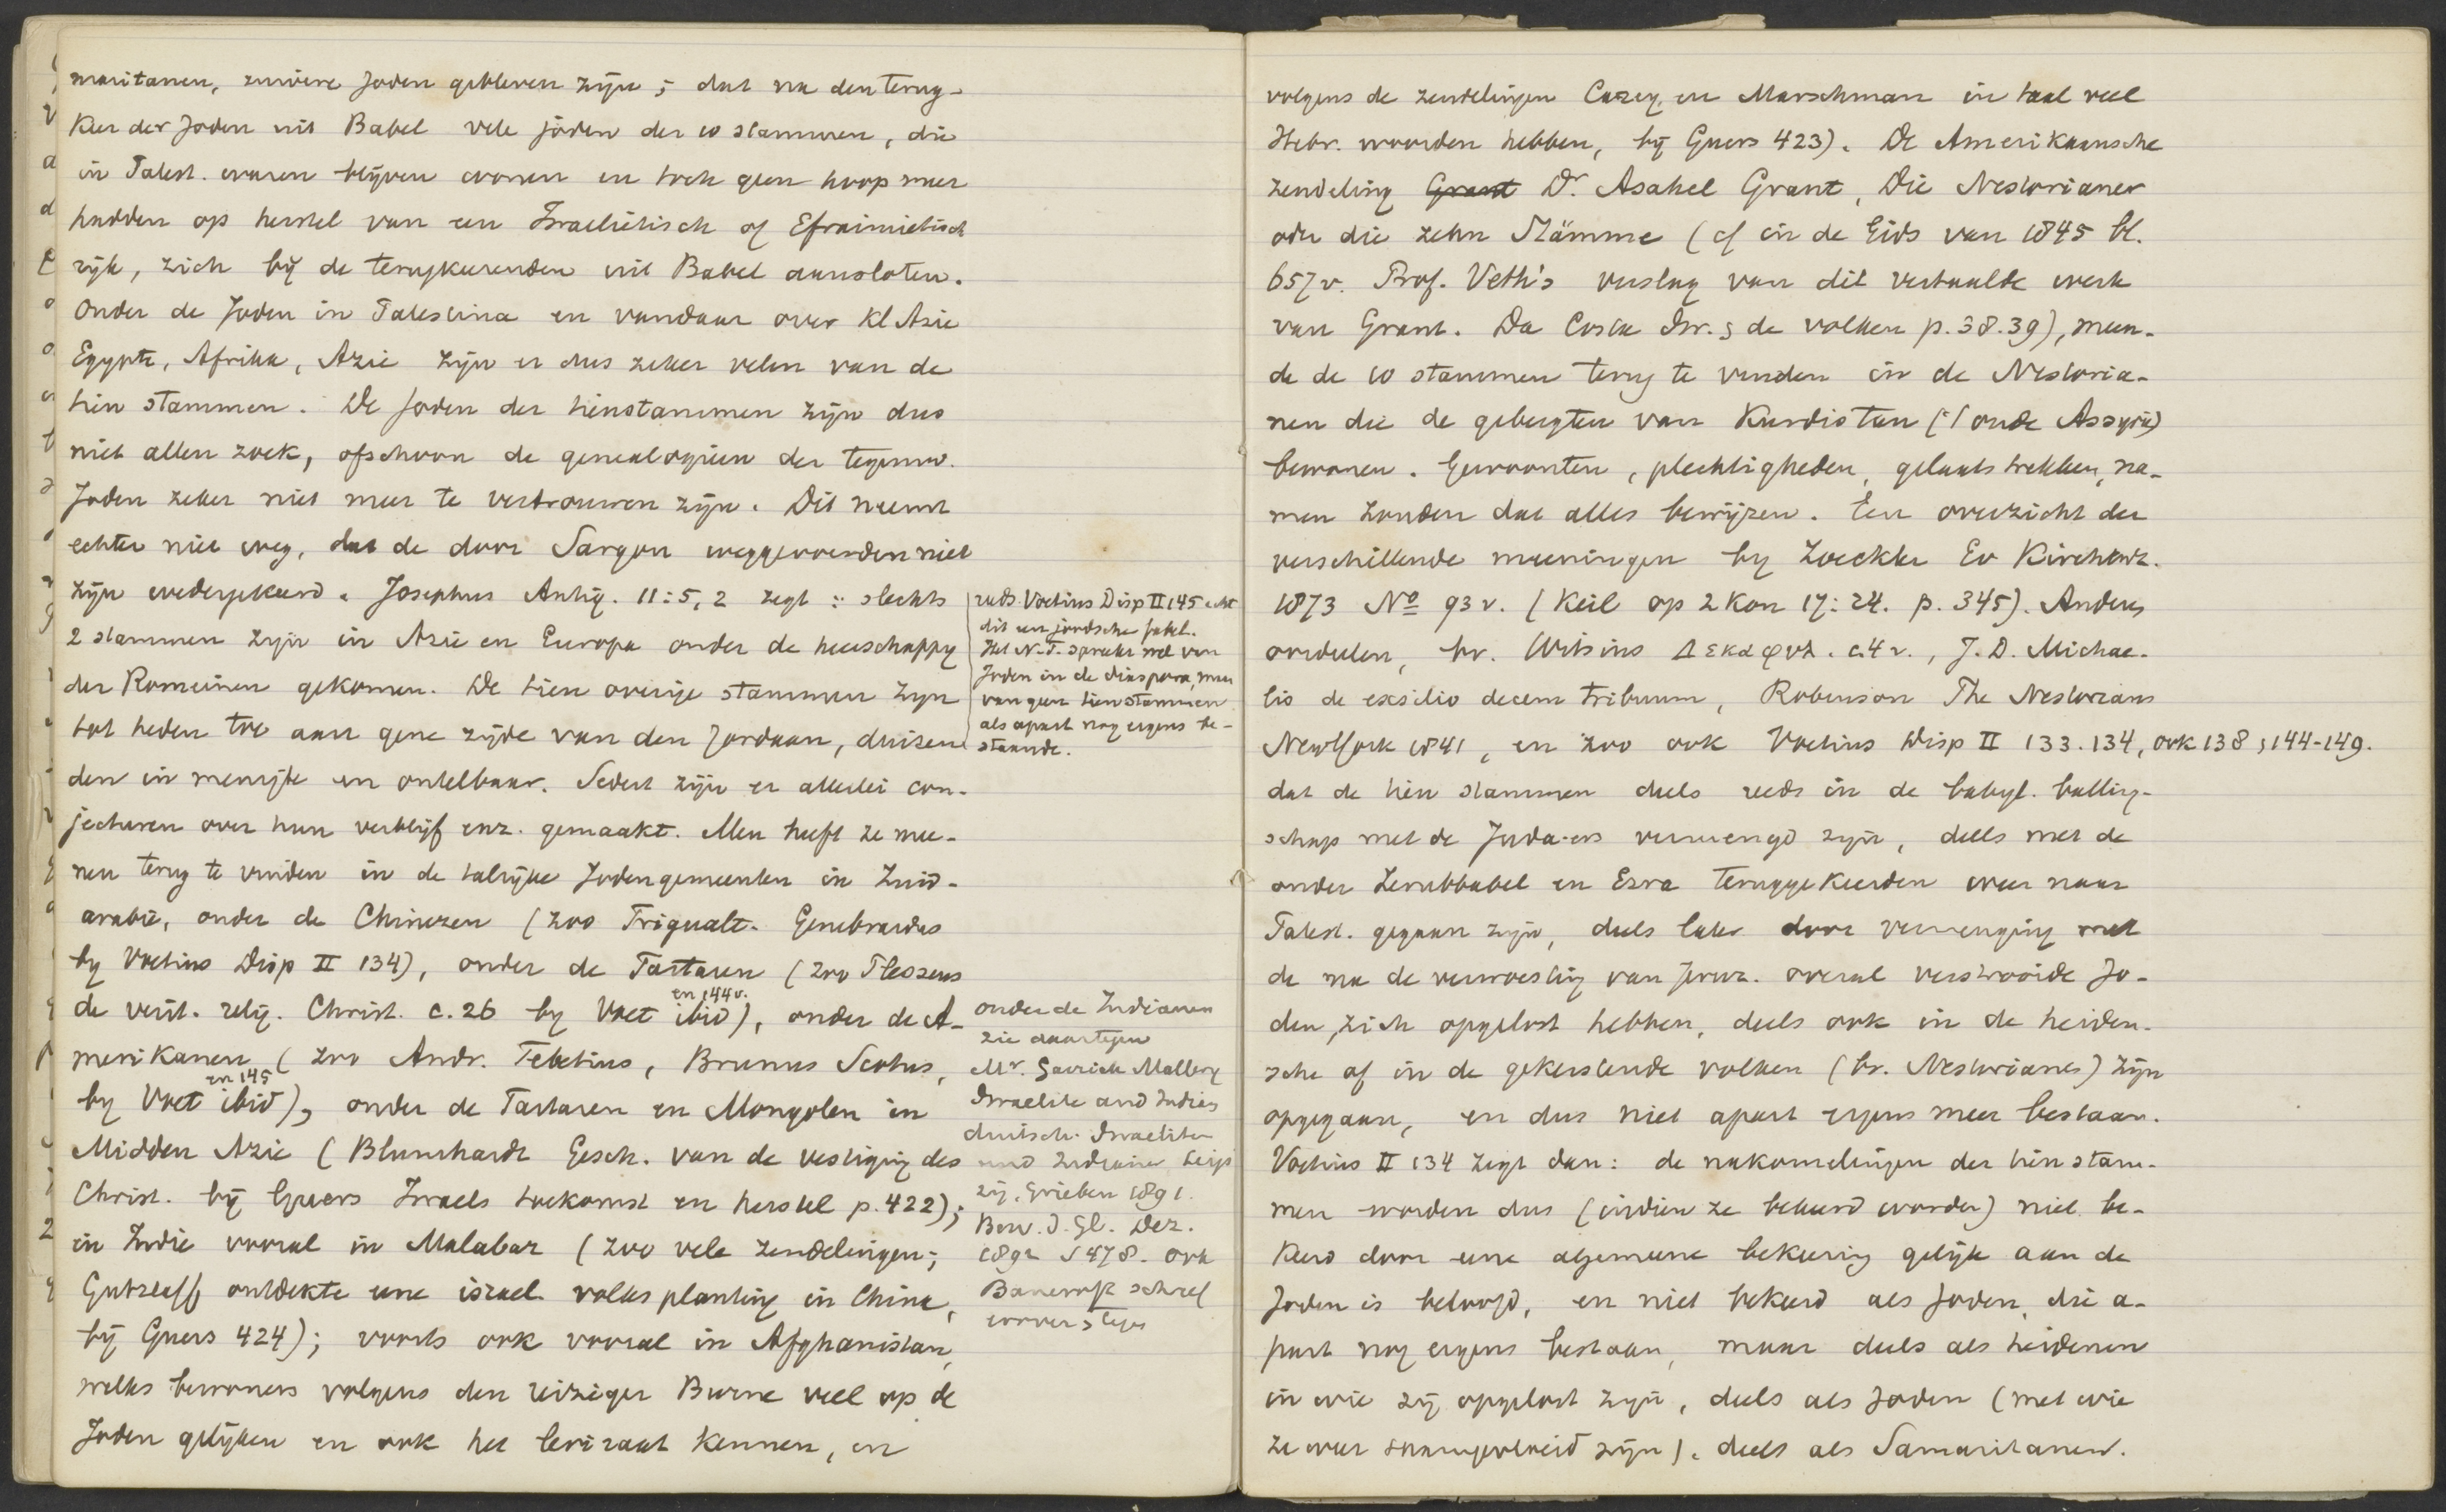 maritanen, zuivere Joden gebleven zijn; dat na den terug-
keer der Joden uit Babel vele joden der 10 stammen, die
in Palest. waren blijven wonen en toch geen hoop meer
hadden op herstel van een Israelietisch of Efraimietisch
rijk, zich bij de terugkeerenden uit Babel aansloten.
Onder de Joden in Palestina en vandaar over Kl Azie
Egypte, Afrika, Azie zijn er dus zeker velen van de
tien stammen. De Joden der tienstammen zijn dus
niet allen zoek, ofschoon de genealogieen der tegenw.
Joden zeker niet meer te vertrouwen zijn. Dit neemt
echter niet weg, dat de door Sargon weggevoerden niet
zijn wedergekeerd. Josephus Antiq. 11:5,2 zegt: slechts
2 stammen zijn in Azie en Europa onder de heerschappij
der Romeinen gekomen. De tien overige stammen zijn
tot heden toe aan gene zijde van den Jordaan, duizen-
den in menigte en ontelbaar. Sedert zijn er allerlei con-
jecturen over hun verblijf enz. gemaakt. Men heeft ze mee-
nen terug te vinden in de talrijke Jodengemeenten in Zuid-
arabie, onder de Chinezen (zoo Trigualt. Genebrardus
by Voetius Disp II 134), onder de Tartaren (zoo Plessaeus
de verit. relig. Christ. c. 26 by Voet ibid en 144v.), onder de A-
merikanen (zoo Andr. Tebetius, Brunus Scotus,
by Voet ibid en 145), onder de Tartaren en Mongolen in
Midden Azie (Blumhardt Gesch. van de vestiging des
Christ. bij Guers Israels toekomst en herstel p. 422);
in Indie vooral in Malabar (zoo vele zendelingen;
Gutzlaff ontdekte eene israel. volksplanting in China,
bij Guers 424); voorts ook vooral in Afghanistan,
welks bewoners volgens den reiziger Burne veel op de
Joden gelijken en ook het leviraat kennen, en
reeds Voetius Disp II 145 acht
dit een joodsche fabel.
Het N.T. spreekt wel van
Joden in de diaspora, maar
van geen tien stammen
als apart nog ergens be-
staande.
onder de Indianen
zie daartegen
Mr. Garrick Mallery
Israelite and Indian
duitsch. Israeliten
und Indianer Leip
zig, Grieben 1891.
Bew. d. Gl. Dez.
1892 S 478. ook
Bancroft schreef
er over
volgens de zendelingen Carey en Marschman in taal veel
Hebr. woorden hebben, bij Guers 423). De Amerikaansche
zendeling Grant Dr. Asahel Grant, Die Nestorianer
oder die zehn Stämme (cf in de Gids van 1845 bl.
657v. Prof. Veth's verslag van dit vertaalde werk
van Grant. Da Costa Isr. & de volken p. 38.39), meen-
de de 10 stammen terug te vinden in de Nestoria-
nen die de gebergten van Kurdistan ('t oude Assyrie)
bewonen. Gewoonten, plechtigheden, gelaatstrekken, na-
men zouden dat alles bewijzen. Een overzicht der
verschillende meeningen by Zoeckler Ev Kirchenz.
1873 No 93v. (Keil op 2 Kon 17:24. p. 345). Anderen
oordeelen, bv. Witsius Δεκαφυλ. c. 4v., J. D. Michae-
lis de exsilio decem tribuum, Robinson The Nestorians
NewYork 1841, en zoo ook Voetius Disp II 133.134, ook 138, 144-149.
dat de tien stammen deels reeds in de babyl. balling-
schap met de Juda-ers vermengd zijn, deels met de
onder Zerubbabel en Ezra teruggekeerden weer naar
Palest. gegaan zijn, deels later door vermenging met
de na de verwoesting van Jeruz. overal verstrooide Jo-
den, zich opgelost hebben, deels ook in de heiden-
sche of in de gekerstende volken (bv. Nestorianen) zijn
opgegaan, en dus niet apart ergens meer bestaan.
Voetius II 134 zegt dan: de nakomelingen der tien stam-
men worden dus (indien ze bekeerd worden) niet be-
keerd door eene algemeene bekeering gelijk aan de
Joden is beloofd, en niet bekeerd als Joden, die a-
part nog ergens bestaan, maar deels als heidenen
in wie zij opgelost zijn, deels als Joden (met wie
ze weer zijn), deels als Samaritanen.